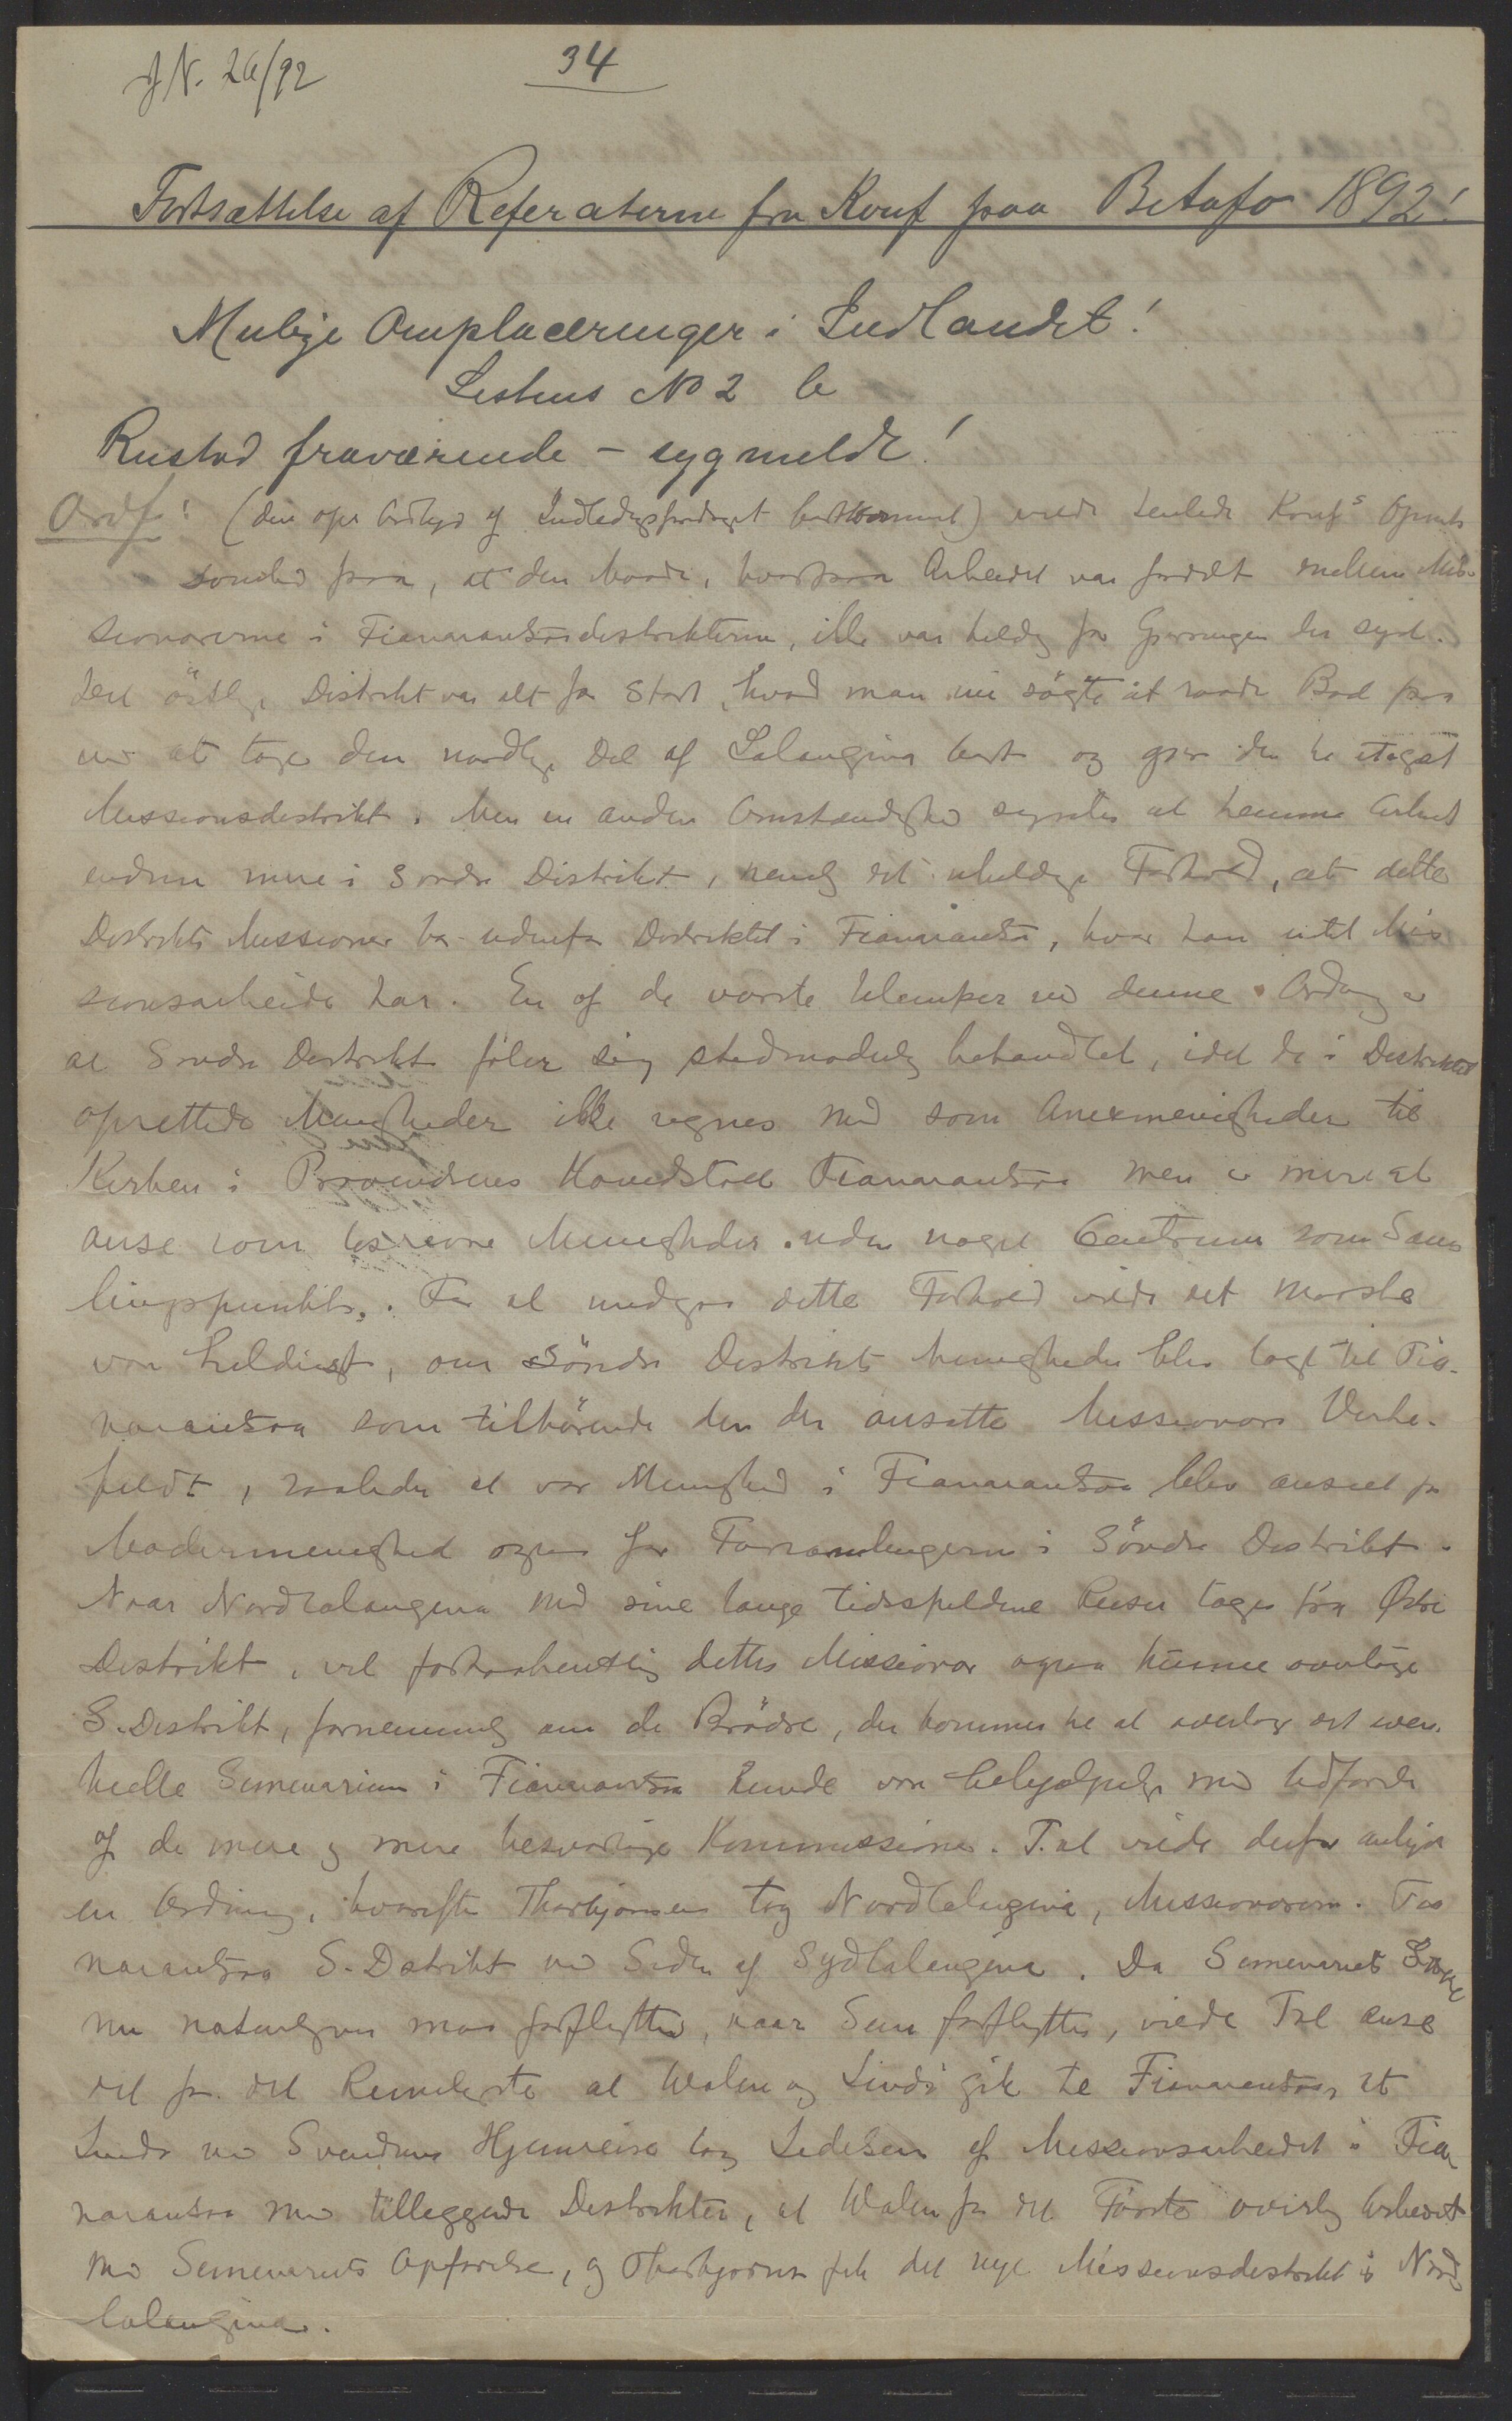 J N. 26/92
34
Fortsættelse af Referaterne fra Konf paa Betafo 1892!
Mulige Omplaceringer i Indlandet!
Listens No 2 b
Rustad fraværende – sygmeldt!
Ordf: (den opr Ordlyd af Indledgsfordraget bortkommet) vilde henlede Konfs Opmærk
somhed paa, at den Maade, hvorpaa Arbeidet var fordelt mellem Mis-
sionærerne i Fianarantsoadistrikterne, ikke var heldig for Gjerningen der syd.
Det östlige Distrikt var alt for Stort, hvad man nu sögte at raade Bod paa
ved at tage den nordlige Del af Lalangina bort og gjøre den til eteget
Missionsdistrikt. Men en anden Omstændighed syntes at hemme Arbeidet
endnu mere i Sondre Distrikt, nemlig det uheldige Forhold, at dette
Distrikts Missionær bor udenfor Distriktet i Fianarantsoa, hvor han intet Mis
sionsarbeide har. En af de værste Ulemper ved denne Ordning er
at Sondre Distrikt föler sig stedmoderlig behandlet, idet de i Distriktet
oprettede Menigheder ikke regnes med som Anexmenigheder til
Kirken i Provindsens Hovedstad Fianarantsoa men er mere at
anse som løsrevne Menigheder uden noget Centrum som Sam
lingspunkt. For at undgaa dette Forhold vilde det maaske
være heldigst, om Söndre Distrikts Menigheder blev lagt til Fia-
narantsoa som tilhörende den der ansatte Missionærs Virke-
feldt, saaledes at vor Menighed i Fianarantsoa blev anseet for
Modermenighed ogsaa for Forsamlingerne i Söndre Distrikt.
Naar Nordlalangina med sine lange tidsspildene Reiser tages fra Østre
Distrikt, vil forhaabentlig dettes Missionær ogsaa kunne overtage
S. Distrikt, fornemmelig om de Brödre, der kommer til at overtage det even-
tuelle Seminarium i Fianarantsoa kunde være behjælpelige med Udførelse
af de mere og mere besværlige Kommissioner. Tal vilde derfor anbefale
en Ordning, hvorefter Thorbjørnsen tog Nordlalangina, Missionæren Fia
narantsoa S. Distrikt ved Siden af Sydlalangina. Da Seminariets
nu naturligvis maa forflyttes, naar Sem forflyttes, vilde Tal anse
det for det Rimeligste at Walen og Lindö gik til Fianarantsoa, at
Lindö ved Svendsens Hjemreise tog Ledelsen af Missionsarbeidet i Fia
narantsoa med tilleggende Distrikter, at Walen for det Förste overtog Arbeidet
med Seminariets Opførelse, og Thorbjørnsen fik det nye Missionsdistrikt i Nord
lalangina.